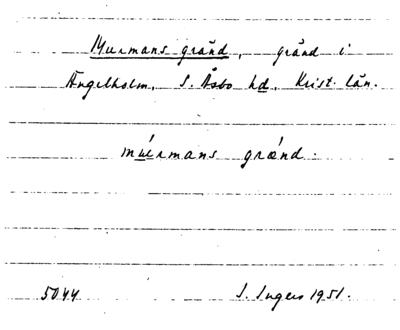 Murmans gränd, gränd i
Ängelholm, S. Åsbo hd, Krist. län.
múrmans grǽnd.
5044 I. Ingers 1951.